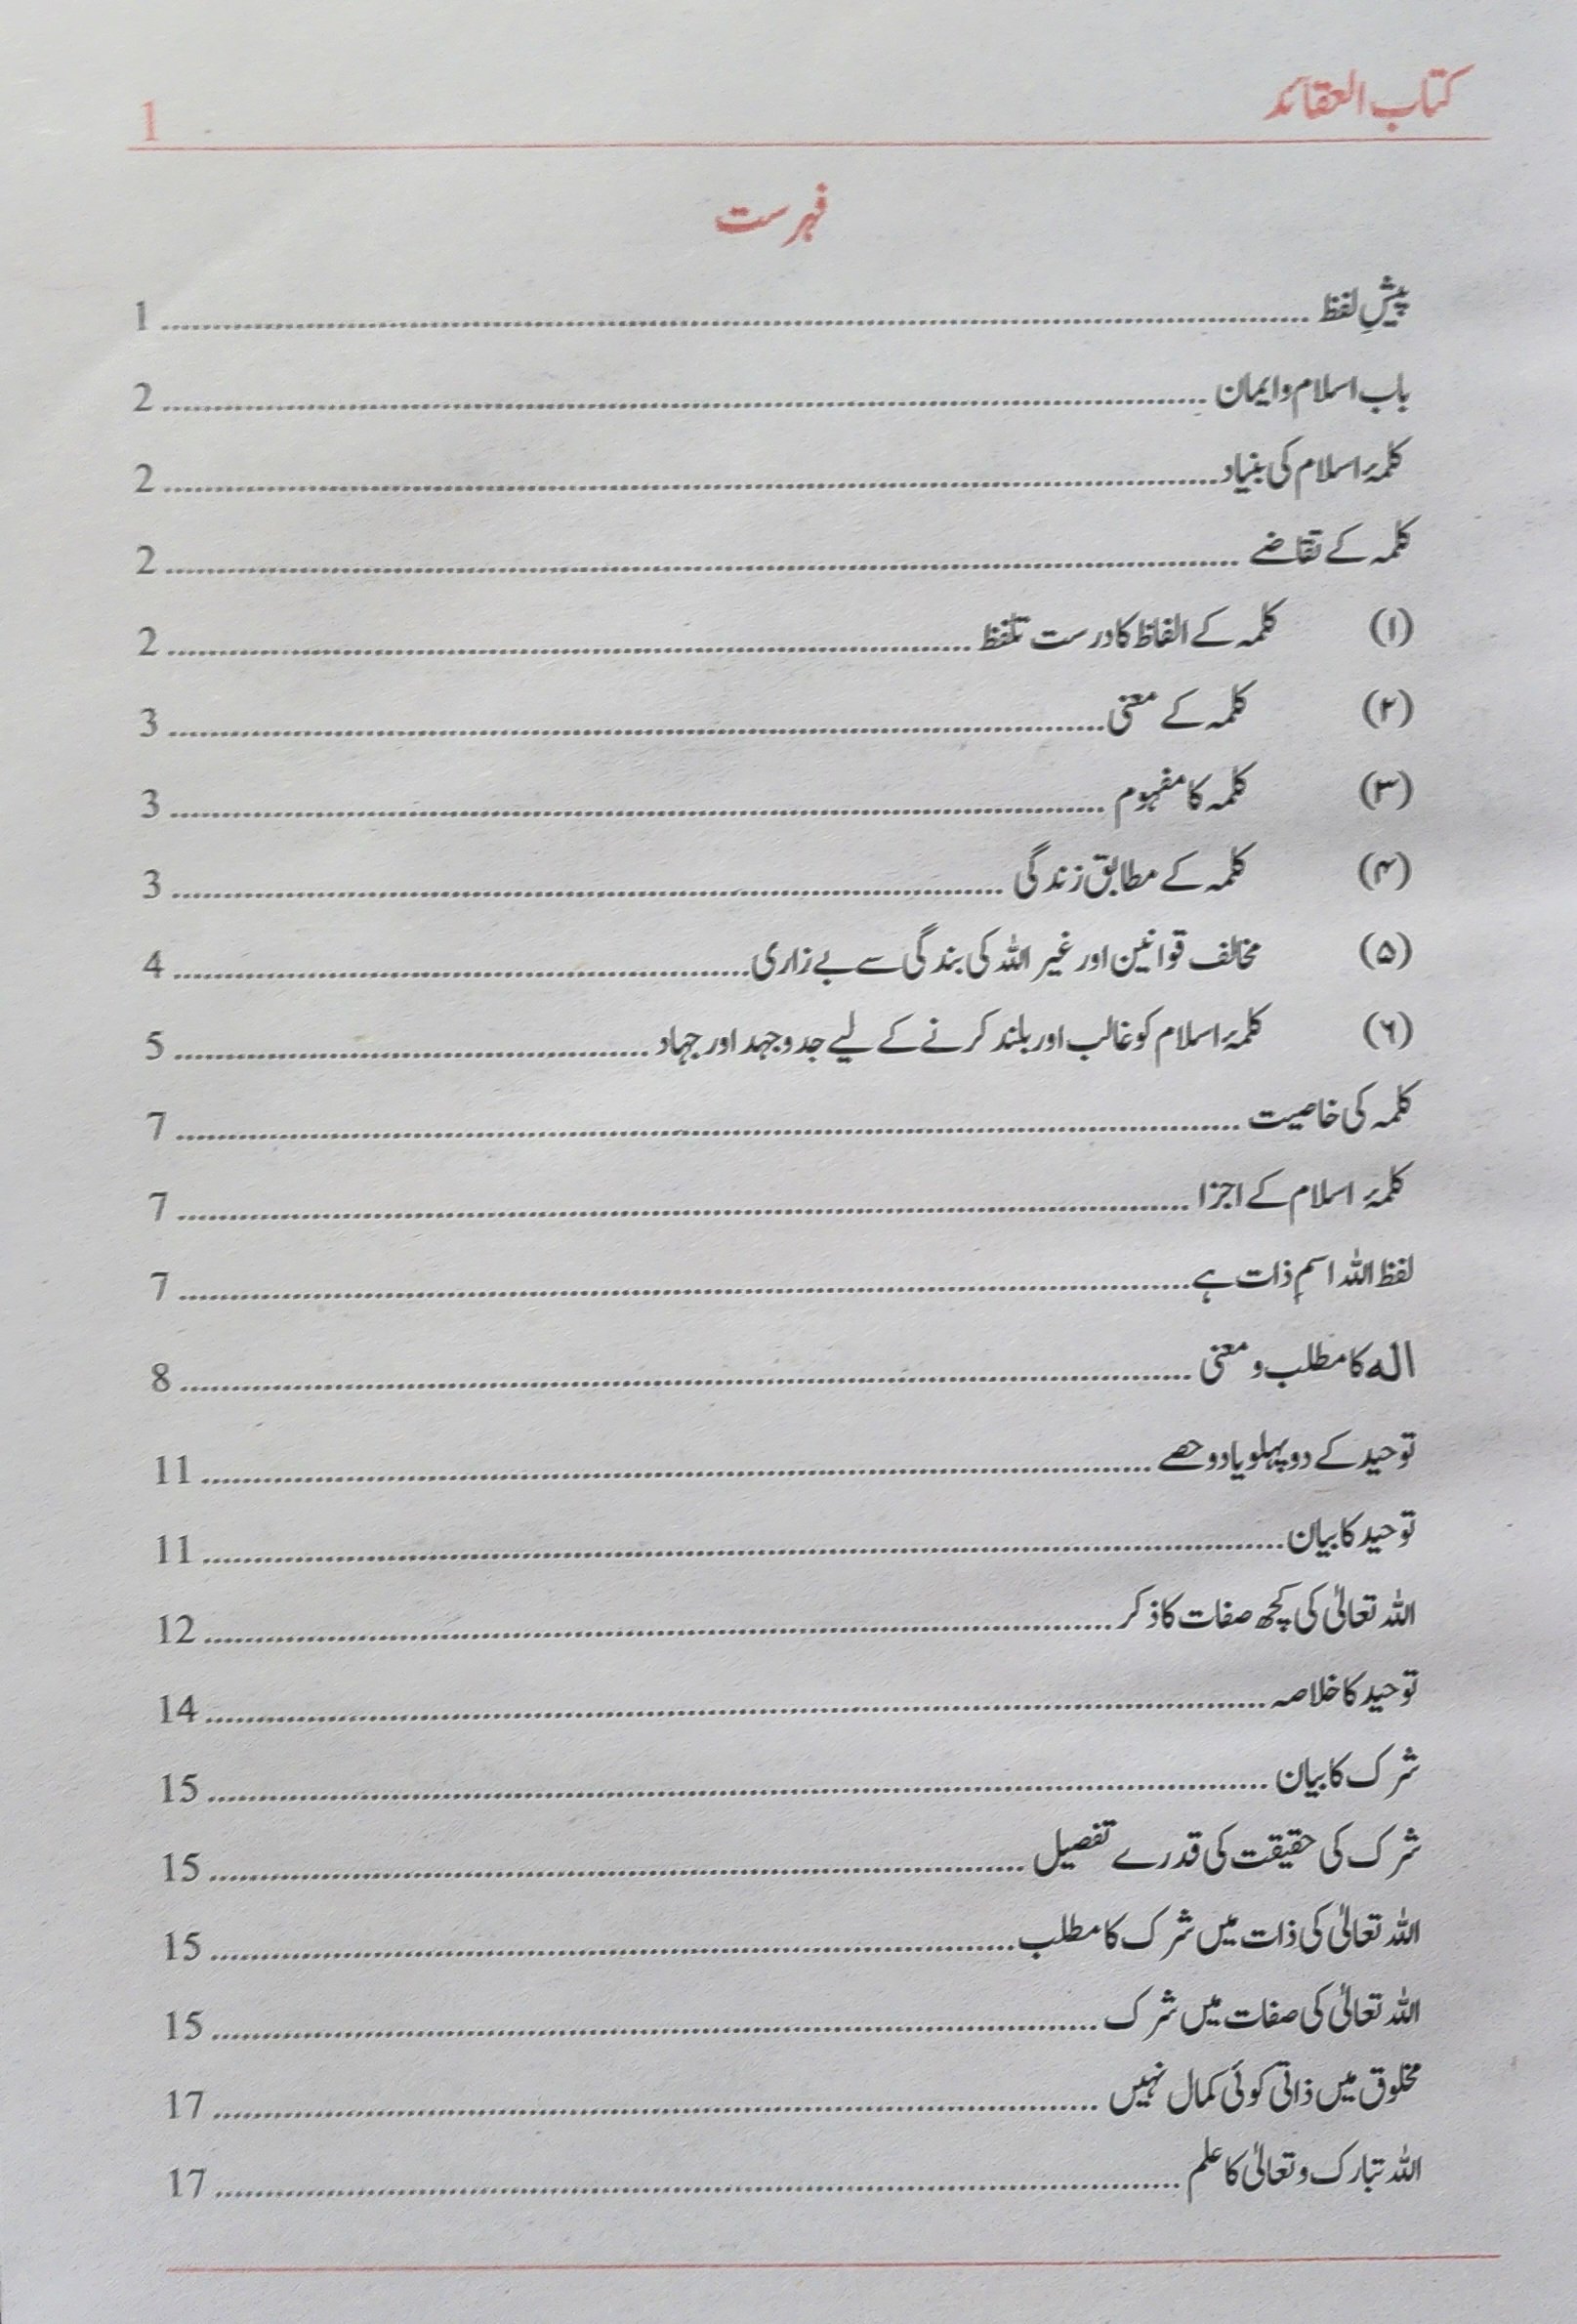 کتاب العقائد 1
فہرست
پیشِ لفظ ........ 1
باب اسلام و ایمان ........ 2
کلمۂ اسلام کی بنیاد ........ 2
کلمہ کے تقاضے ........ 2
(۱) کلمہ کے الفاظ کا درست تلفظ ........ 2
(۲) کلمہ کے معنی ........ 3
(۳) کلمہ کا مفہوم ........ 3
(۴) کلمہ کے مطابق زندگی ........ 3
(۵) مخالف قوانین اور غیر اللہ کی بندگی سے بے زاری ........ 4
(۶) کلمۂ اسلام کو غالب اور بلند کرنے کے لیے جدوجہد اور جہاد ........ 5
کلمہ کی خاصیت ........ 7
کلمۂ اسلام کے اجزا ........ 7
لفظ اللہ اسمِ ذات ہے ........ 7
الہ کا مطلب و معنی ........ 8
توحید کے دو پہلو یا دو حصے ........ 11
توحید کا بیان ........ 11
اللہ تعالیٰ کی کچھ صفات کا ذکر ........ 12
توحید کا خلاصہ ........ 14
شرک کا بیان ........ 15
شرک کی حقیقت کی قدرے تفصیل ........ 15
اللہ تعالیٰ کی ذات میں شرک کا مطلب ........ 15
اللہ تعالیٰ کی صفات میں شرک ........ 15
مخلوق میں ذاتی کوئی کمال نہیں ........ 17
اللہ تبارک و تعالیٰ کا علم ........ 17